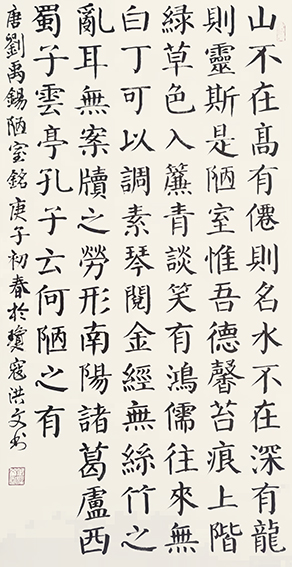 山不在高有僊則名水不在深有龍
則靈斯是陋室惟吾德馨苔痕上階
綠草色入簾青談笑有鴻儒往來無
白丁可以調素琴閱金經無絲竹之
亂耳無案牘之勞形南陽諸葛盧西
蜀子雲亭孔子云何陋之有
唐劉禹錫陋室銘庚子初春於瓊寇洪文书